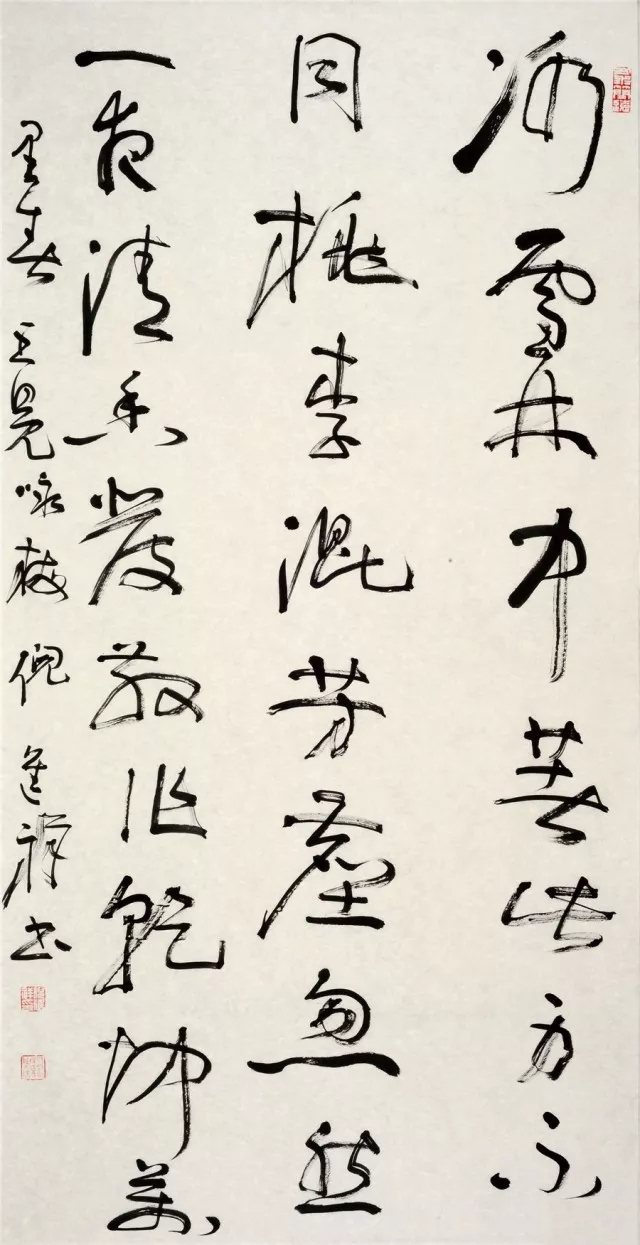 冰雪林中著此身不
同桃李混芳塵忽然
一夜清香發散作乾坤萬
里春 王冕咏梅 倪進祥书